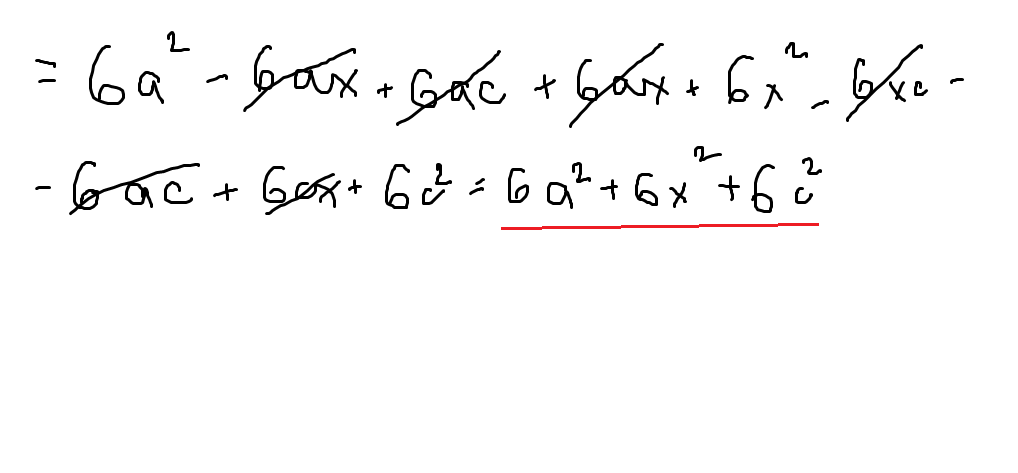 = 6a² - 6ax + 6ac + 6ax + 6x² - 6xc -
- 6ac + 6cx + 6c² = 6a² + 6x² + 6c²